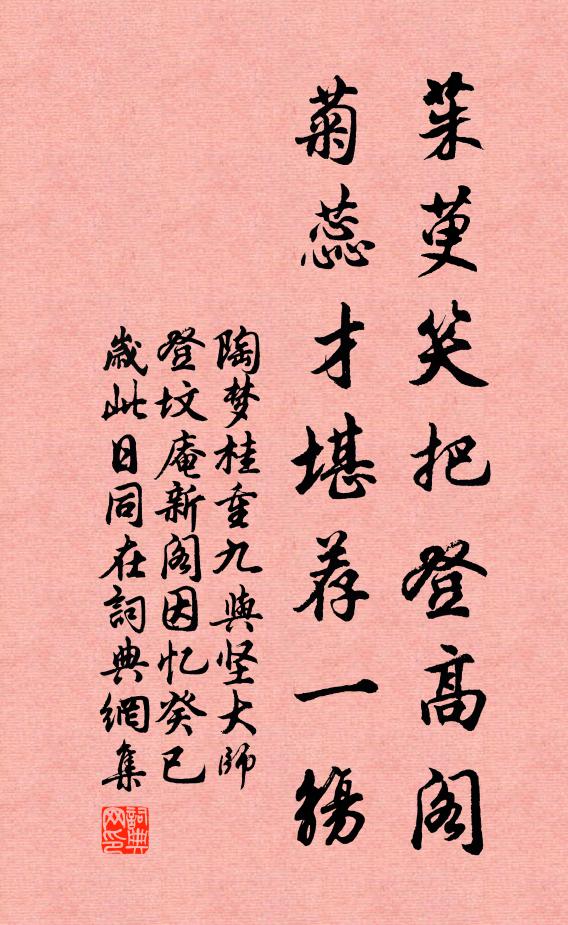 茱萸笑把登高阁
菊蕊才堪荐一觞
陶梦桂重九與坚大師
登坟庵新阁因忆癸巳
歲此日同在詞典網集
詞典
网印